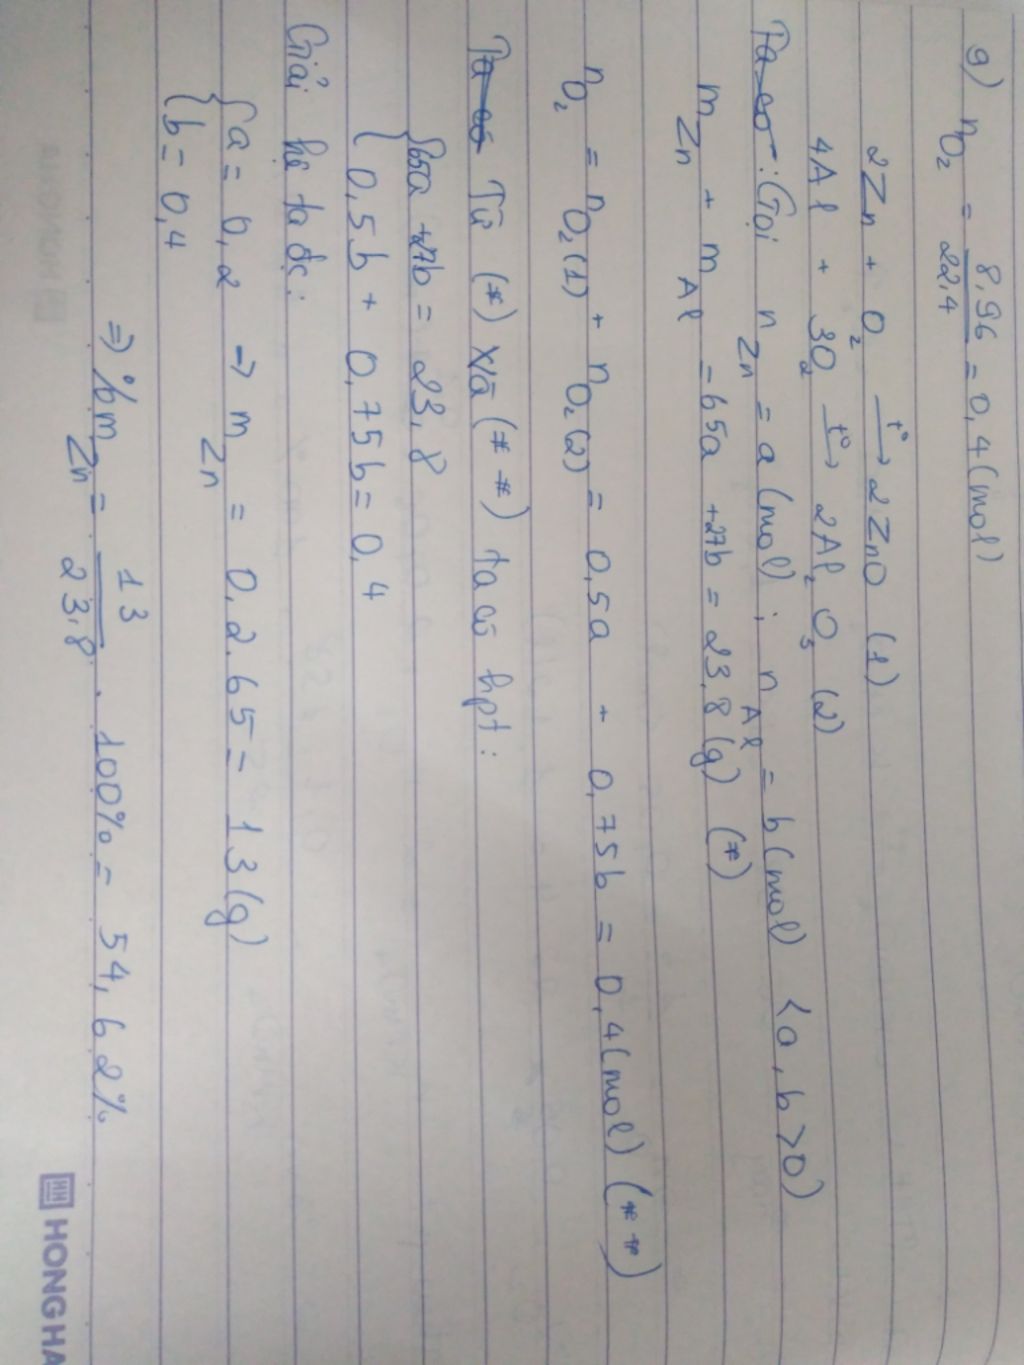 a) nO₂ = 8,96/22,4 = 0,4 (mol)
2Zn + O₂ —t°→ 2ZnO (1)
4Al + 3O₂ —t°→ 2Al₂O₃ (2)
Ta có : Gọi nZn = a (mol) ; nAl = b (mol) (a, b >0)
mZn + mAl = 65a +27b = 23,8 (g) (*)
nO₂ = nO₂(1) + nO₂(2) = 0,5a + 0,75b = 0,4 (mol) (**)
Ta có Từ (*) và (**) ta có hpt :
{65a +27b = 23,8
{0,5b + 0,75b = 0,4
Giải hệ ta đc :
{a = 0,2 → mZn = 0,2.65 = 13 (g)
{b = 0,4
⇒ %mZn = 13/23,8 . 100% = 54,62%
HONG HA